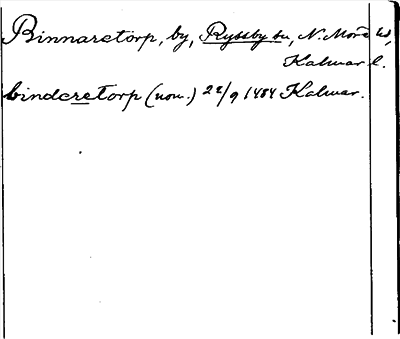 Binnaretorp, by, Ryssby sn, N. Möre hd,
Kalmar l.
bindcretorp (nom.) 22/9 1484 Kalmar.